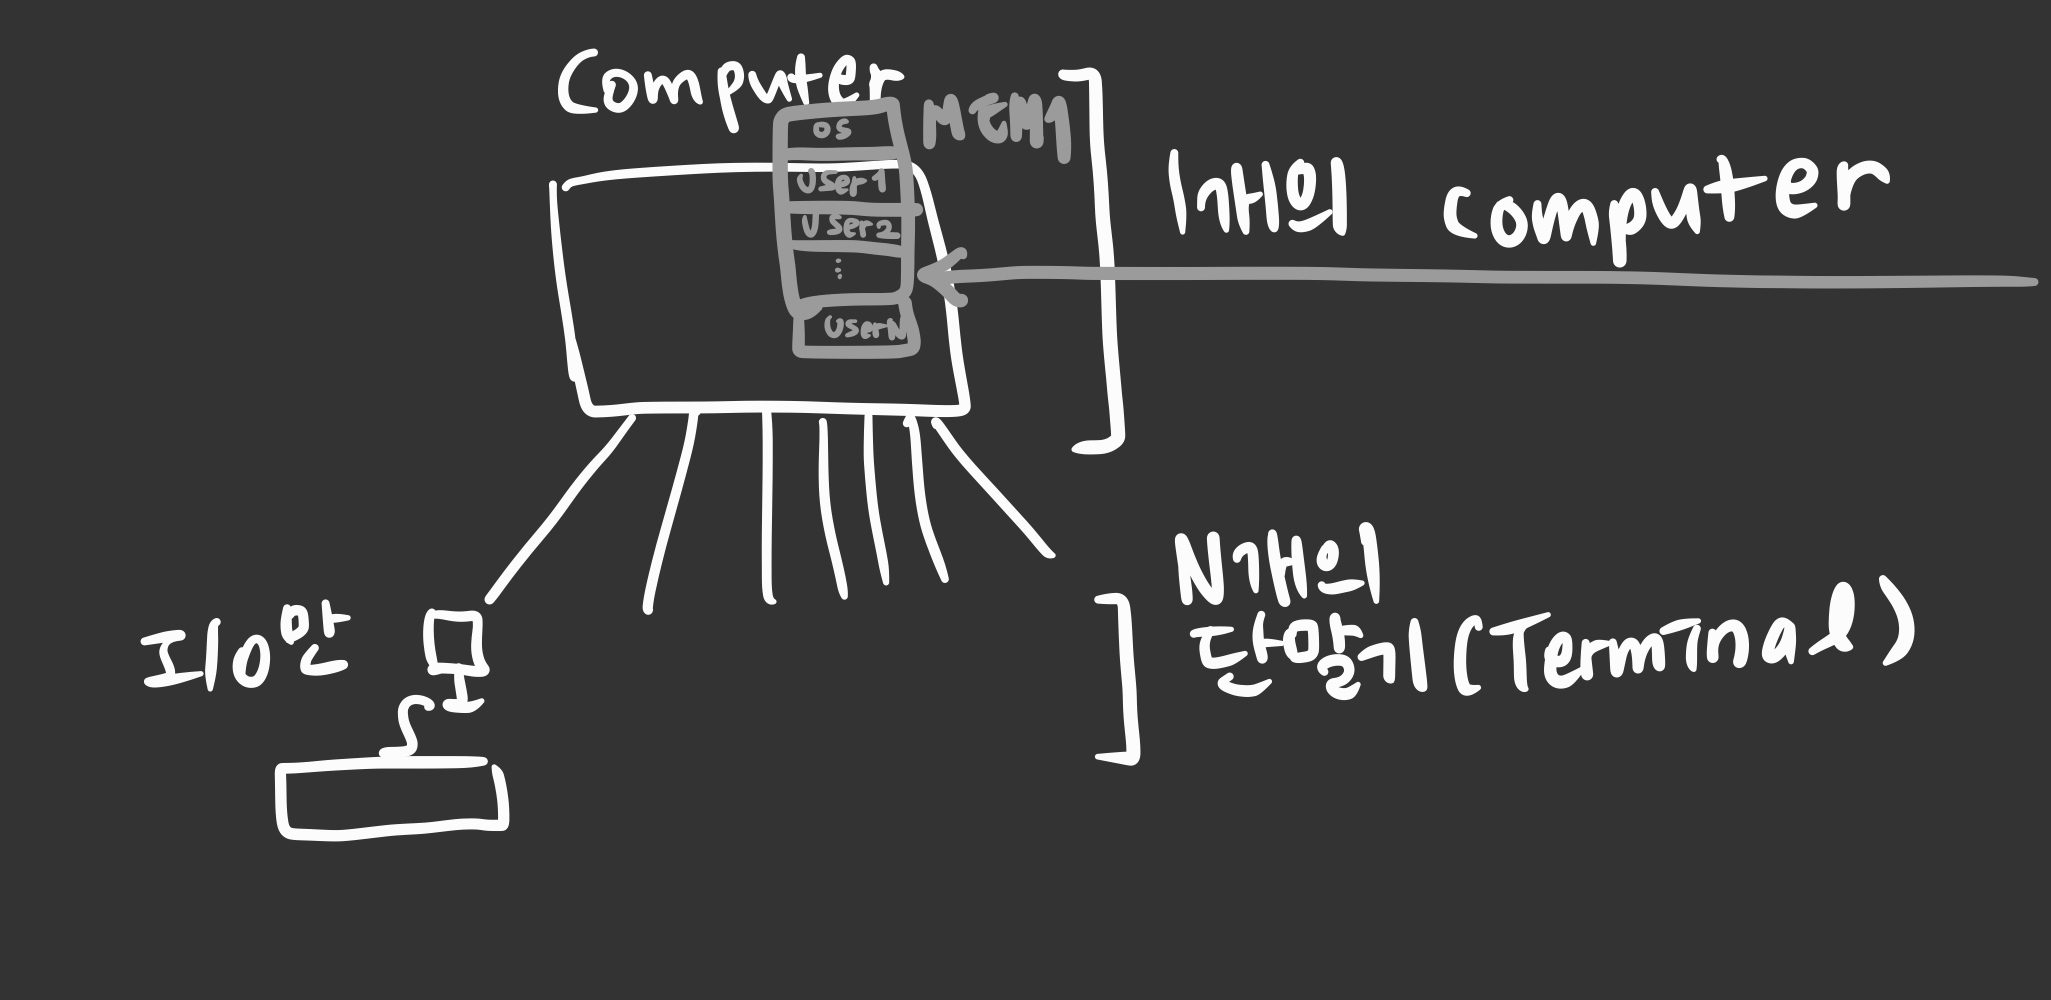 Computer
MEM
OS
User1
User2
⋮
UserN
1개의 computer
N개의
단말기 (Terminal)
I/O만